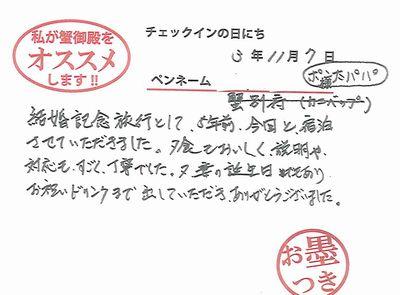 私が蟹御殿を
オススメ
します!!
チェックインの日にち
3年11月7日
ペンネーム
ポンタパパ様
蟹別府（カニベップ）
結婚記念旅行として、5年前、今回と、宿泊
させていただきました。夕食もおいしく、説明や、
対応も、すごく、丁寧でした。又妻の誕生日もあり
お祝いドリンクまで出していただき、ありがとうございました。
お墨
つき